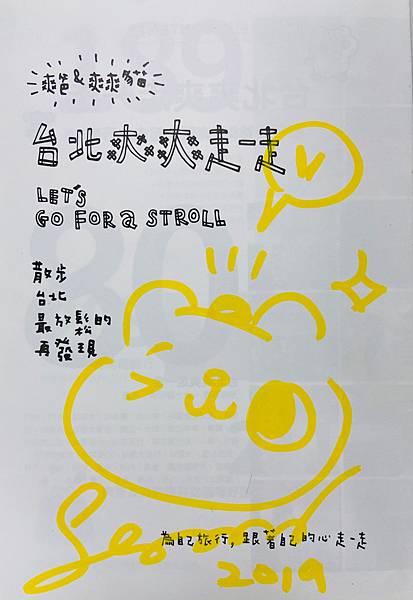 爽爸&爽爽貓
台北爽爽走一走
LET'S
GO FOR a STROLL
V
散步
台北
最放鬆的
再發現
為自己旅行,跟著自己的心走一走
2019